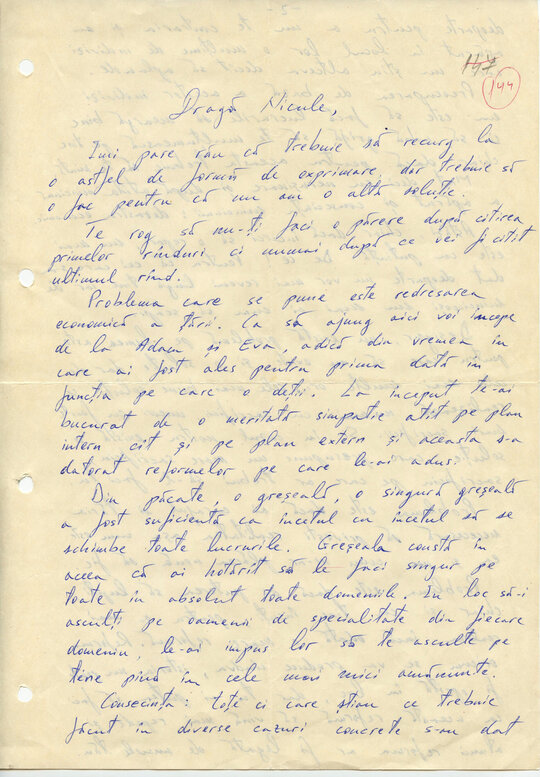 147
144
Dragă Nicule,
Îmi pare rău că trebuie să recurg la
o astfel de formă de exprimare, dar trebuie să
o fac pentru că nu am o altă soluție.
Te rog să nu-ți faci o părere după citirea
primelor rînduri ci numai după ce vei fi citit
ultimul rînd.
Problema care se pune este redresarea
economică a țării. Ca să ajung aici voi începe
de la Adam și Eva, adică din vremea în
care ai fost ales pentru prima dată în
funcția pe care o deții. La început te-ai
bucurat de o meritată simpatie atît pe plan
intern cît și pe plan extern și aceasta s-a
datorat reformelor pe care le-ai adus.
Din păcate, o greșeală, o singură greșeală
a fost suficientă ca încetul cu încetul să se
schimbe toate lucrurile. Greșeala constă în
aceea că ai hotărît să le faci singur pe
toate în absolut toate domeniile. În loc să-i
asculți pe oamenii de specialitate din fiecare
domeniu, le-ai impus lor să te asculte pe
tine pînă în cele mai mici amănunte.
Consecința: toți ci care știau ce trebuie
făcut în diverse cazuri concrete s-au dat